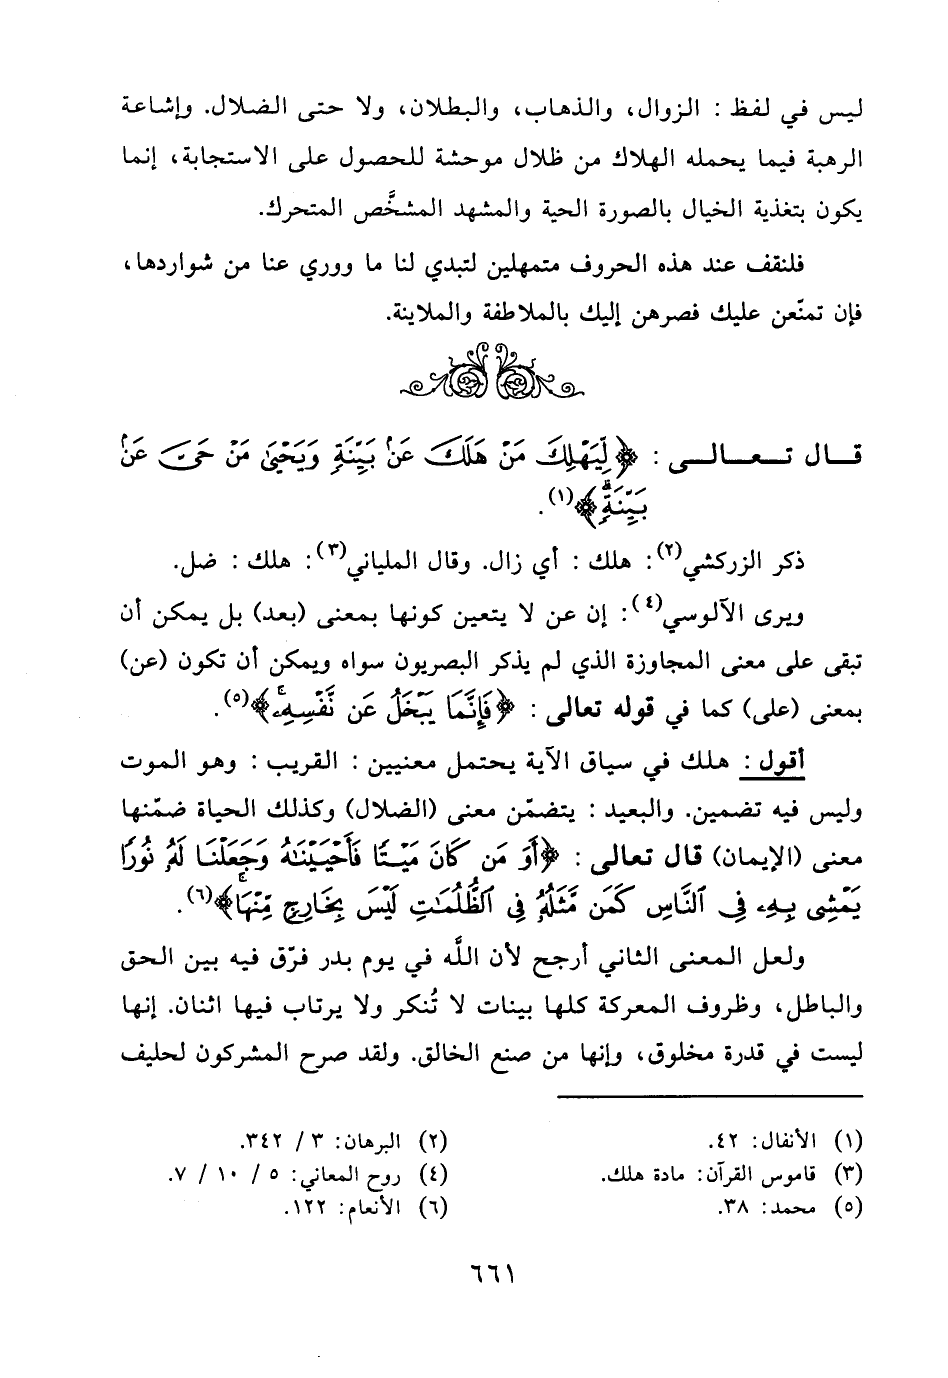 ليس في لفظ : الزوال، والذهاب، والبطلان، ولا حتى الضلال. وإشاعة
الرهبة فيما يحمله الهلاك من ظلال موحشة للحصول على الاستجابة، إنما
يكون بتغذية الخيال بالصورة الحية والمشهد المشخَّص المتحرك.
فلنقف عند هذه الحروف متمهلين لتبدي لنا ما ووري عنا من شواردها،
فإن تمنّعن عليك فصرهن إليك بالملاطفة والملاينة.
قـــال تـــعـــالـــى : ﴿لِّيَهْلِكَ مَنْ هَلَكَ عَنۢ بَيِّنَةٍ وَيَحْيَىٰ مَنْ حَىَّ عَنۢ
بَيِّنَةٍۗ﴾(١).
ذكر الزركشي(٢): هلك : أي زال. وقال الملياني(٣): هلك : ضل.
ويرى الآلوسي(٤): إن عن لا يتعين كونها بمعنى (بعد) بل يمكن أن
تبقى على معنى المجاوزة الذي لم يذكر البصريون سواه ويمكن أن تكون (عن)
بمعنى (على) كما في قوله تعالى : ﴿فَإِنَّمَا يَبْخَلُ عَن نَّفْسِهِۦۚ﴾(٥).
أقول : هلك في سياق الآية يحتمل معنيين : القريب : وهو الموت
وليس فيه تضمين. والبعيد : يتضمّن معنى (الضلال) وكذلك الحياة ضمّنها
معنى (الإيمان) قال تعالى : ﴿أَوَ مَن كَانَ مَيْتًا فَأَحْيَيْنَٰهُ وَجَعَلْنَا لَهُۥ نُورًا
يَمْشِى بِهِۦ فِى ٱلنَّاسِ كَمَن مَّثَلُهُۥ فِى ٱلظُّلُمَٰتِ لَيْسَ بِخَارِجٍ مِّنْهَاۚ﴾(٦).
ولعل المعنى الثاني أرجح لأن اللَّه في يوم بدر فرّق فيه بين الحق
والباطل، وظروف المعركة كلها بينات لا تُنكر ولا يرتاب فيها اثنان. إنها
ليست في قدرة مخلوق، وإنها من صنع الخالق. ولقد صرح المشركون لحليف
(١) الأنفال: ٤٢.
(٢) البرهان: ٣ / ٣٤٢.
(٣) قاموس القرآن: مادة هلك.
(٤) روح المعاني: ٥ / ١٠ / ٧.
(٥) محمد: ٣٨.
(٦) الأنعام: ١٢٢.
٦٦١